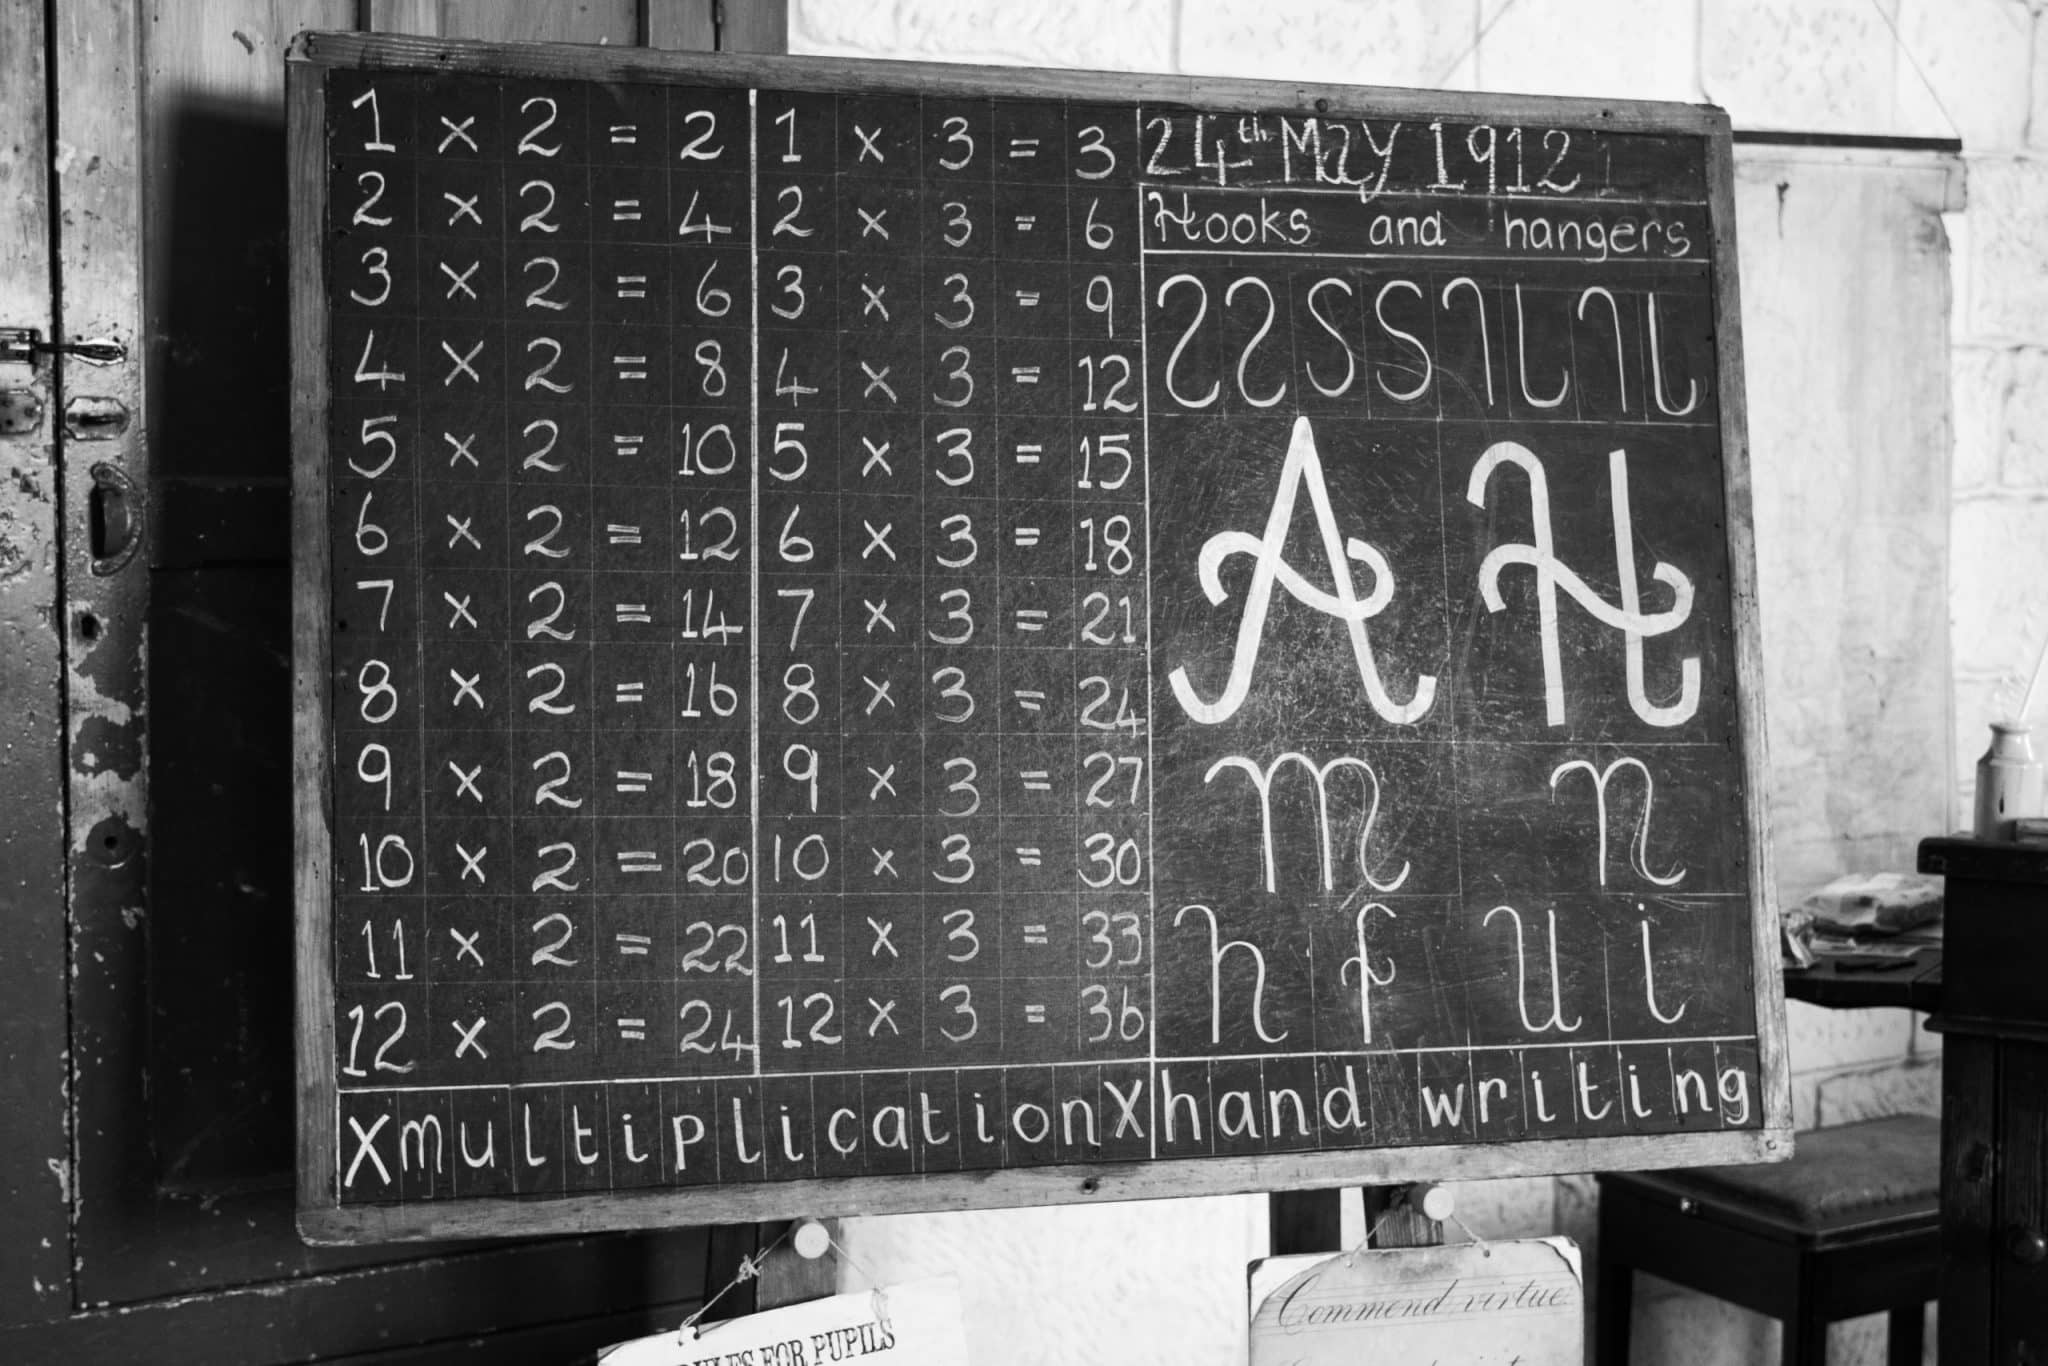 1 × 2 = 2
2 × 2 = 4
3 × 2 = 6
4 × 2 = 8
5 × 2 = 10
6 × 2 = 12
7 × 2 = 14
8 × 2 = 16
9 × 2 = 18
10 × 2 = 20
11 × 2 = 22
12 × 2 = 24
1 × 3 = 3
2 × 3 = 6
3 × 3 = 9
4 × 3 = 12
5 × 3 = 15
6 × 3 = 18
7 × 3 = 21
8 × 3 = 24
9 × 3 = 27
10 × 3 = 30
11 × 3 = 33
12 × 3 = 36
X multiplication X
24th May 1912
Hooks and hangers
A H
m n
h f u i
hand writing
RULES FOR PUPILS
Commend virtue